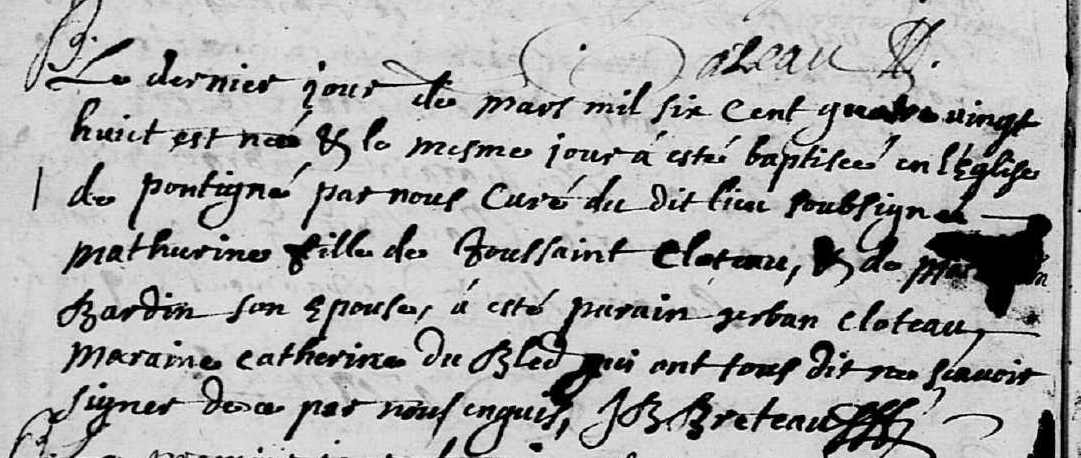 B.
Le dernier jour de mars mil six cent quatre vingt
huict est née & le mesme jour á esté baptiseé en l'Eglise
de pontigné par nous Curé du dit lieu soubsigné
mathurine fille de Toussaint Cloteau, & de
Bardin son Epouse, á esté parain yrban Cloteau,
maraine catherine du Bled qui ont tous dit ne scavoir
signer de ce par nous enquis, JB Breteau